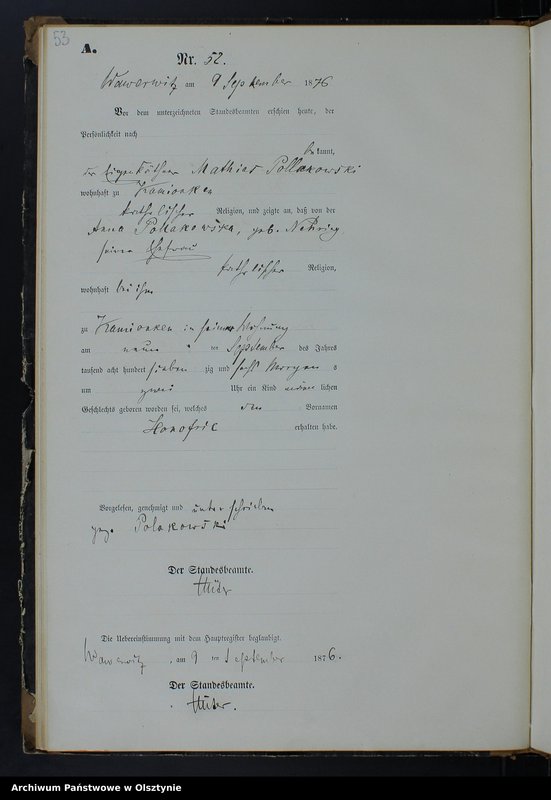 53
A.
Nr. 52.
Wawerwitz am 9 September 1876
Vor dem unterzeichneten Standesbeamten erschien heute, der
Persönlichkeit nach
be kannt,
der Eigenkäthner Mathias Pollakowski
wohnhaft zu Kamionken
katholischer Religion, und zeigte an, daß von der
Anna Pollakowska, geb. Nehring
seiner Ehefrau
katholischer Religion,
wohnhaft bei ihm
zu Kamionken in seiner Wohnung
am neun ten September des Jahres
tausend acht hundert sieben zig und sechs Morgens
um zwei Uhr ein Kind männ lichen
Geschlechts geboren worden sei, welches den Vornamen
Honofrie erhalten habe.
Vorgelesen, genehmigt und unterschrieben
gez. Polakowski
Der Standesbeamte.
Die Uebereinstimmung mit dem Hauptregister beglaubigt.
Wawerwitz, am 9 ten September 1876.
Der Standesbeamte.
Archiwum Państwowe w Olsztynie